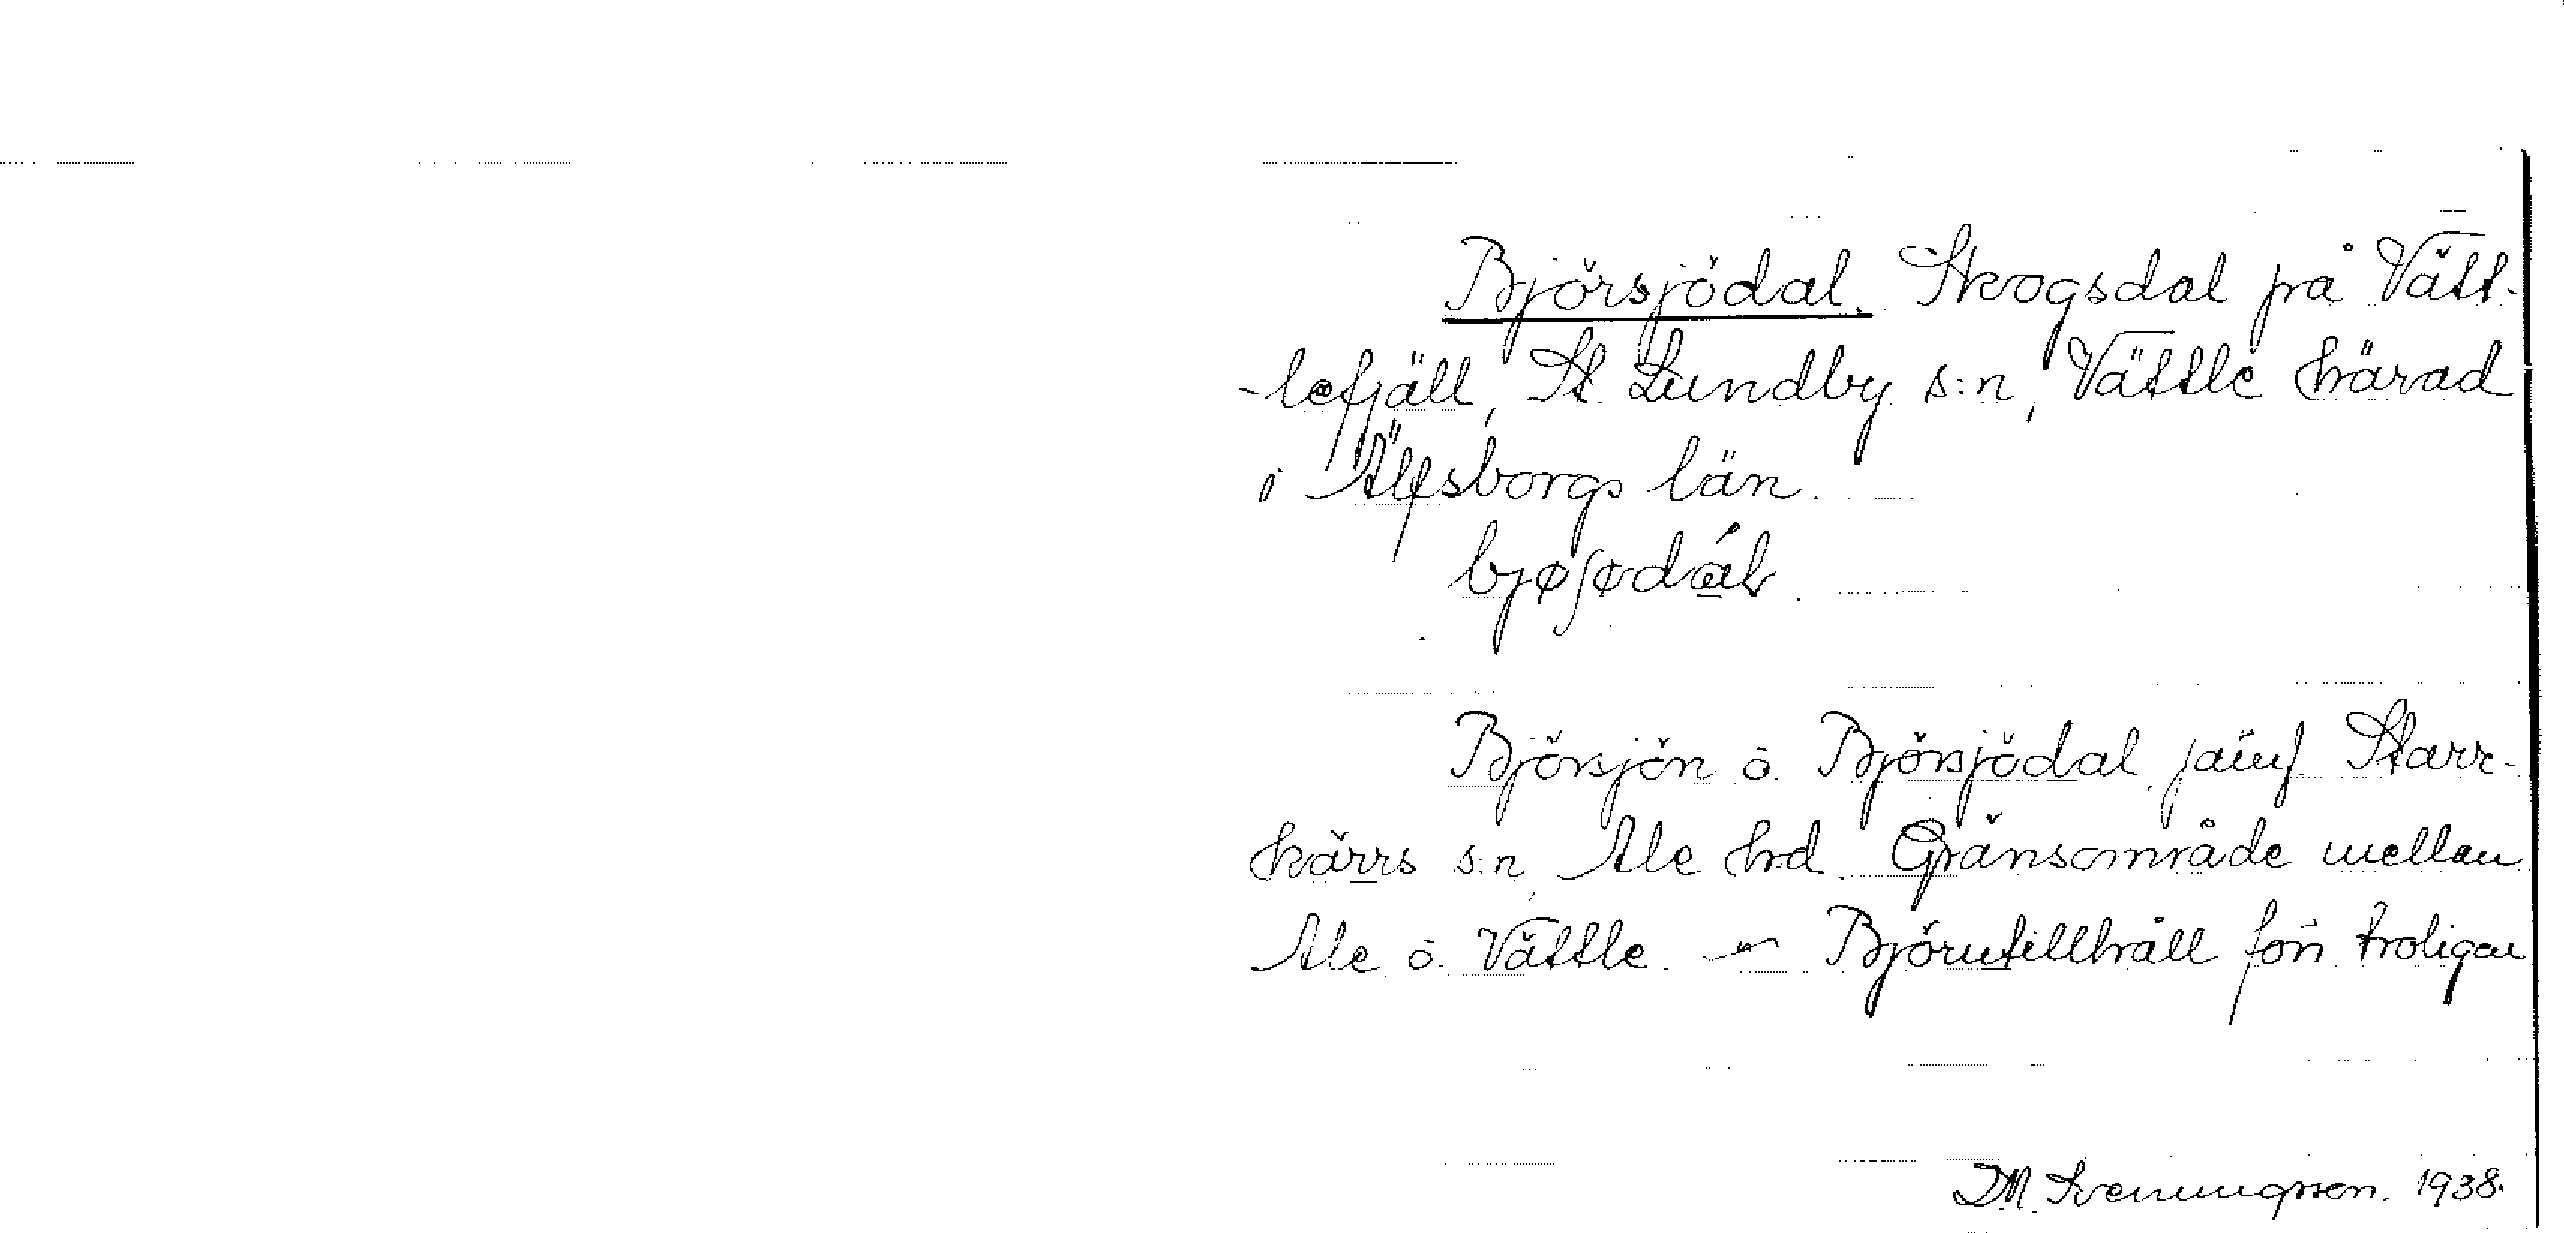 Björsjödal. Skogsdal på Vätt-
-lefjäll, St. Lundby s:n, Vättle härad
i Älfsborgs län.
bjøʃødál.
Björsjön o. Björsjödal, jämf Starr-
kärrs s:n, Ale hrd. Gränsområde mellan
Ale o. Vättle. — Björntillhåll förr troligen
D M. Svenungsson. 1938.